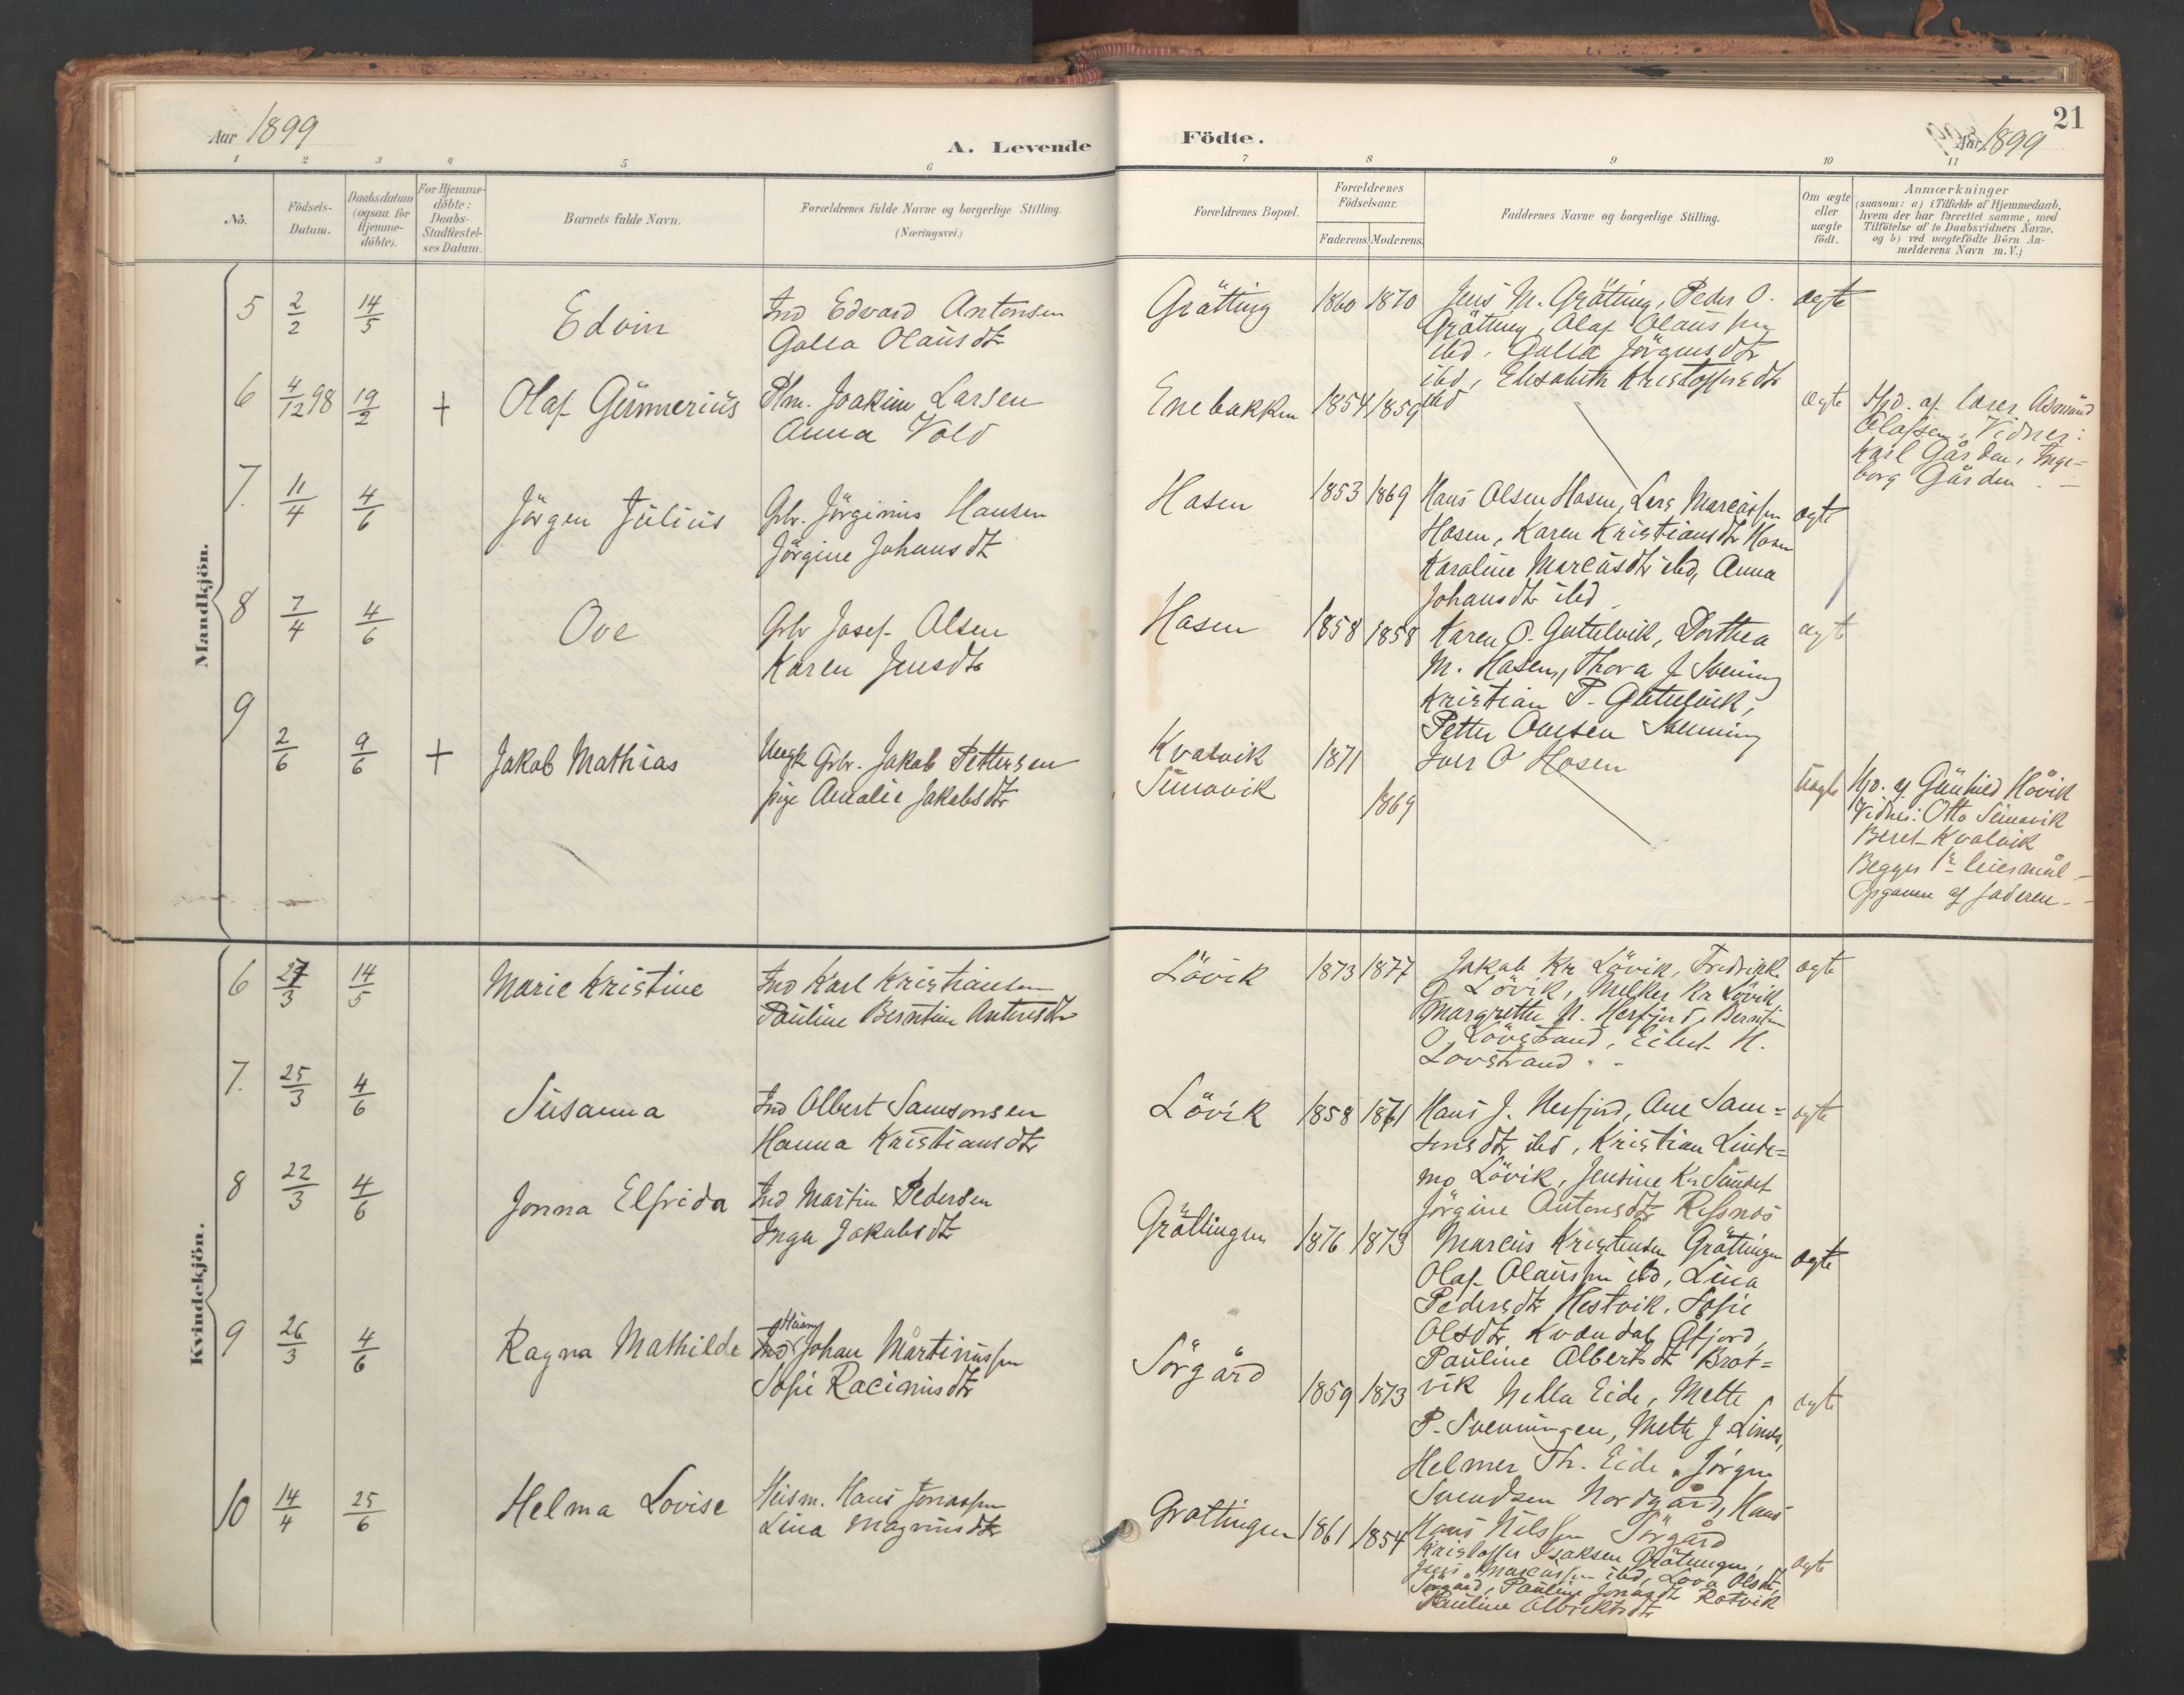 Aar 1899
A. Levende
Födte.
21
Aar 1899
1 2 3 4 5 6 7 8 9 10 11
No.
Födsels-
Datum.
Daabsdatum
(ogsaa for
Hjemme-
döbte).
For Hjemme-
döbte:
Daabs-
Stadfæstel-
ses Datum.
Barnets fulde Navn.
Forældrenes fulde Navne og borgerlige Stilling.
(Næringsvei.)
Forældrenes Bopæl.
Forældrenes
Födselsaar.
Faderens. Moderens.
Faddernes Navne og borgerlige Stilling.
Om ægte
eller
uægte
födt.
Anmærkninger
(saasom: a) i Tilfælde af Hjemmedaab,
hvem der har forrettet samme, med
Tilföielse af to Daabsvidners Navne.
og b) ved uægtefödte Börn An-
melderens Navn m.V.)
Mandkjön.
5 2/2 14/5 Edvin
Ind Edvard Antonsen
Galla Olausdtr
Grätting 1860 1870
Jens M. Grätting, Peder O.
Grätting, Olaf Olaussen
ibd, Galla Jörgensdtr
ibd, Elisabeth Kristoffersdtr
ibd
ægte
6 4/12 98 19/2 + Olaf Günnerius
Plm. Joakim Larsen
Anna Vold
Enebakken 1854 1859
ægte
Hjd. af lærer Asmund
Olafsen. Vidner:
Karl Gården, Inge=
borg Gården
7. 11/4 4/6 Jörgen Julius
Gbr. Jörginus Hansen
Jörgine Johansdtr
Hasen 1853 1869
Hans Olsen Hasen, Lars Marcussen
Hasen, Karen Kristiansdtr Hasen
Karoline Marcusdtr ibd, Anna
Johansdtr ibd
ægte
8 7/4 4/6 Ove
Gbr Josef Olsen
Karen Jensdtr
Hasen 1858 1858
Karen O. Getelvik, Dorthea
M. Hasen, Thora J Svenning
Kristian P. Getelvik,
Petter Ovesen Svenning
Iver O Hosen
ægte
9 2/6 9/6 + Jakob Mathias
Ungk Gbr. Jakob Pettersen
pige Amalie Jakobsdtr
Kvalvik 1871
Simavik 1869
uægte
Hjd. af Günhild Håvik
Vidner: Otto Simavik
Beret Kvalvik
Begges 1ste leiermål -
Opgaven af faderen -
Kvindekjön.
6 27/3 14/5 Marie Kristine
Ind Karl Kristiansen
Pauline Berntine Antonsdtr
Lövik 1873 1877
Jakob Kr Lövik, Fredrikke
O Lövik, Melker Kr Lövik
Margrethe N. Herfjord, Berntin
O. Lövstrand, Eilert H.
Lövstrand
ægte
7. 25/3 4/6 Susanna
Ind Albert Samsonsen
Hanna Kristiansdtr
Lövik 1858 1861
Hans J. Herfjord, Ane Sam=
sonsdtr ibd, Kristian Linde=
mo Lövik, Jensine Kr Sundet
Jörgine Antonsdtr Refsnæs
ægte
8 22/3 4/6 Jonna Elfrida
Ind Martin Pedersen
Inga Jakobsdtr
Grättingen 1876 1873
Marcus Kristensen Grättingen
Olaf Olaussen ibd, Lina
Pedersdtr Hestvik, Sofie
Olsdtr Kvændal, Åfjord,
Pauline Albertsdtr Brat=
vik
ægte
9 26/3 4/6 Ragna Mathilde
Husm
Ind Johan Martinussen
Sofie Racinusdtr
Sörgård 1859 1873
Nella Eide, Mette
P. Svenningen, Mette J Linds,
Helmer Th. Eide, Jörgen
Svendsen Nordgård, Hans
Hans Nilssen Sörgård
ægte
10 14/4 25/6 Helma Lovise
Husm. Hans Jonassen
Lina Magnusdtr
Grattingen 1861 1854
Kristoffer Isaksen Grätingen,
Jens Marcussen ibd, Lova Olsdtr
Sörgård, Pauline Jonasdtr Ratvik
Pauline Albrektsdtr
ægte